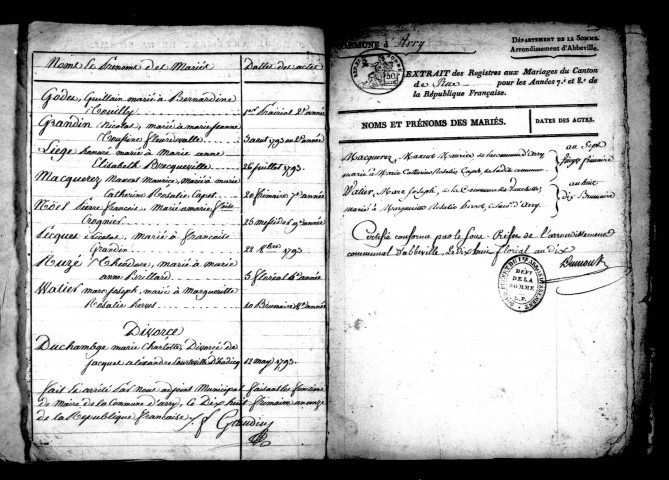 Noms et Prénoms des Mariés Dattes des actes
Godes, Guillain marié à Bernardine
Pouilly 1er Prairial 2e année
Grandin Nicolas, marié à marie jeanne
Cousine fleurivalle 3 aout 1793 ou 2e année
Liège honoré marié à Marie anne
Elisabeth Bucqueville 26 juillet 1793.
Macquerez Maxent Maurice, marié à marie
Catherine Rosalie Capet 20 frimaire 7e année
Nöel pierre françois, marié à marie
Crognier 25 messidor 9e année
Pecquet Nicolas, marié à françoise
Grandin 22 8bre 1793
Ruzé Théodore, marié à marie
anne Brillard 5 floréal 6e année
Watier marc joseph, marié à Marguerite
Rosalie herset 10 Brumaire 8e année
Divorce
Duchambge marie Charlotte, Divorcé de
jacques alexandre 12 may 1793.
fait et arrêté par nous adjoint Municipal faisant les fonctions
de Maire de la Commune d'arry, ce Dix huit frimaire an onze
de la République française
COMMUNE d'Arry
DÉPARTEMENT DE LA SOMME.
Arrondissement d'Abbeville.
EXTRAIT des Registres aux Mariages du Canton
de Rue pour les Années 7.e et 8.e de
la République Française.
NOMS ET PRÉNOMS DES MARIÉS. DATES DES ACTES.
Macquerez, Maxent Maurice de la commune d'Arry au Sept
marié à Marie Catherine Rosalie Capet, de la dite commune frimaire
Vatier, Marc Joseph, de la Commune de au huit
marié à Marguerite Rosalie herset, d'Arry Dix Brumaire
Certifié conforme par le Sous Préfet de l'arrondissement
communal d'abbeville, le dix floréal an dix
Dumont
DEPT
DE LA
SOMME